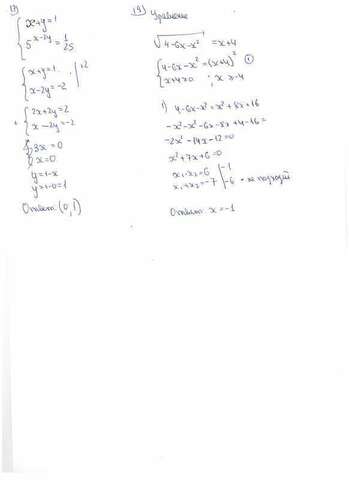 17)
{ x+y=1
5^(x-2y) = 1/25
{ x+y=1 | ·2
x-2y=-2
+ { 2x+2y=2
x-2y=-2
{ 3x=0
x=0
y=1-x
y=1-0=1
Ответ (0,1)
19) Уравнение
√(4-6x-x²) = x+4
{ 4-6x-x²=(x+4)² ①
x+4≥0 ; x≥-4
1) 4-6x-x²=x²+8x+16
-x²-x²-6x-8x+4-16=
-2x²-14x-12=0
x²+7x+6=0
x₁·x₂=6 | -1
x₁+x₂=-7 | -6 - не подходит
Ответ x=-1